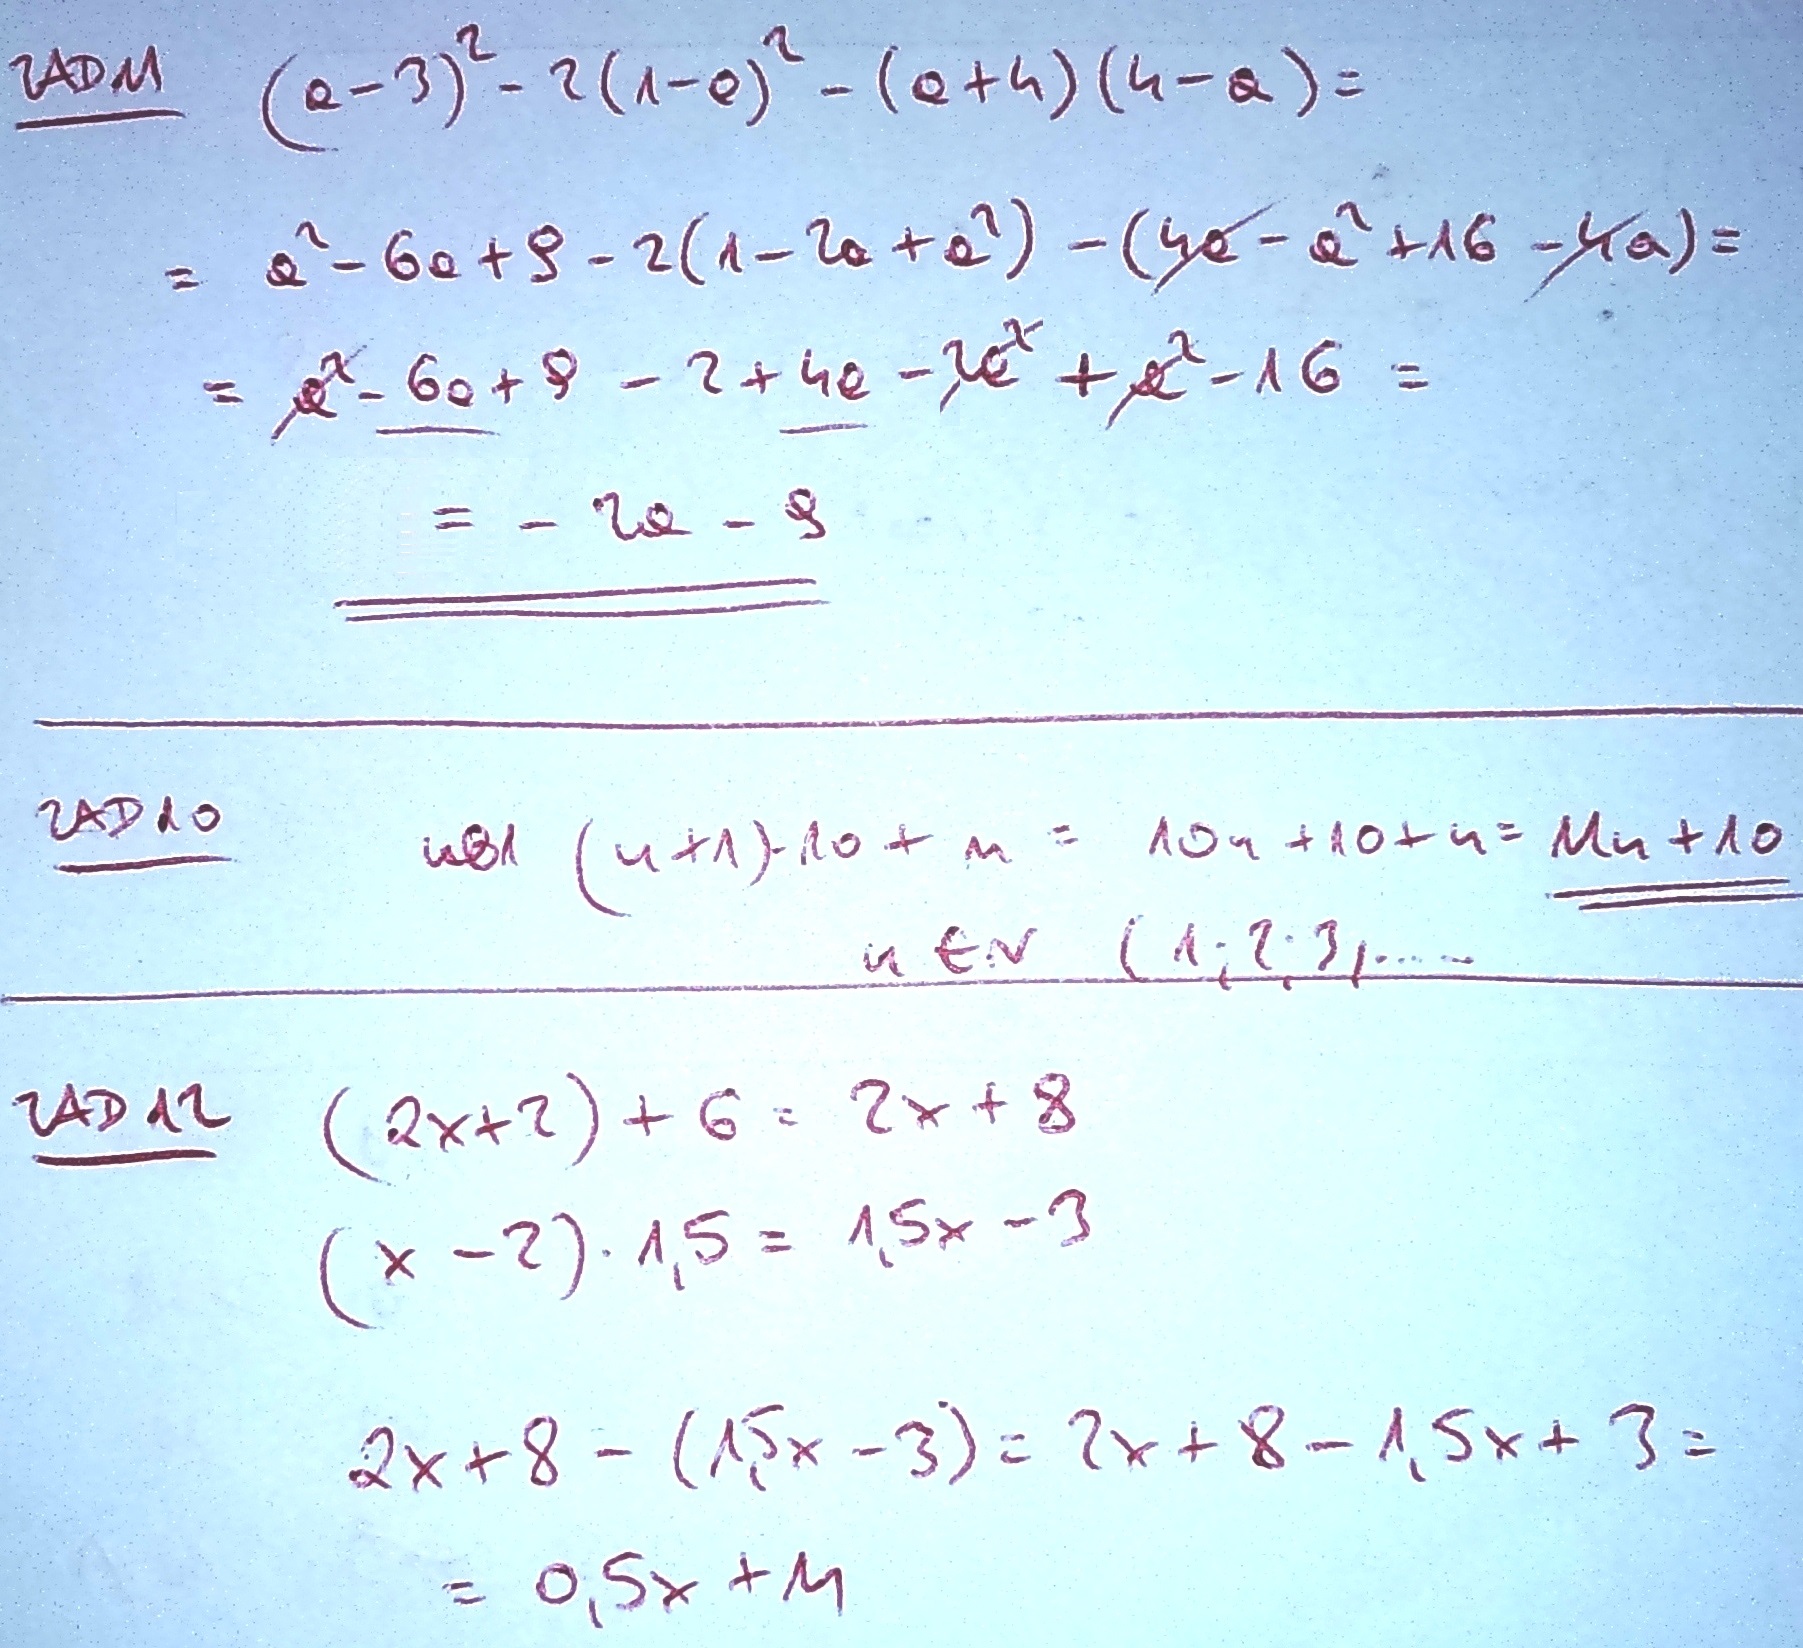 ZAD 11 (a-3)² - 2(1-a)² - (a+4)(4-a) =
= a² - 6a + 9 - 2(1 - 2a + a²) - (4a - a² + 16 - 4a) =
= a² - 6a + 9 - 2 + 4a - 2a² + a² - 16 =
= - 2a - 9
ZAD 10 (n+1)·10 + n = 10n + 10 + n = 11n + 10
n ∈ N (1; 2; 3, .....
ZAD 12 (2x+2) + 6 = 2x + 8
(x - 2) · 1,5 = 1,5x - 3
2x + 8 - (1,5x - 3) = 2x + 8 - 1,5x + 3 =
= 0,5x + 11